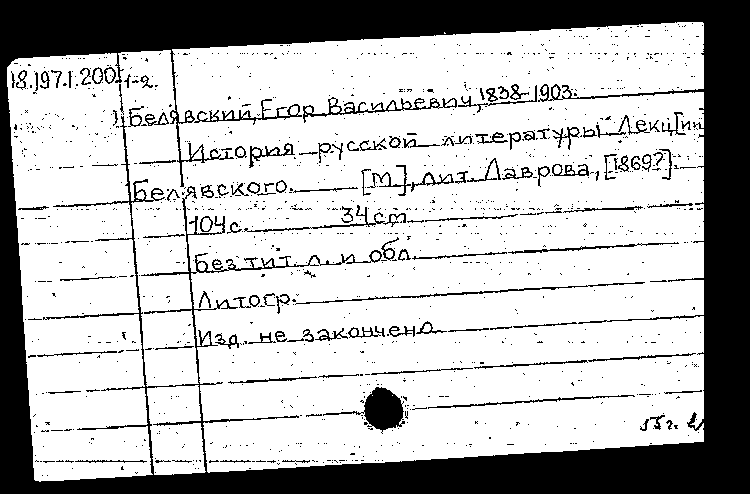 18.197.1.200 1-2.
Белявский, Егор Васильевич, 1838-1903.
История русской литературы Лекц[ии]
Белявского. [М.], лит. Лаврова, [1869?].
104 с. 34 см
Без тит. л. и обл.
Литогр.
Изд. не закончено
55 г.